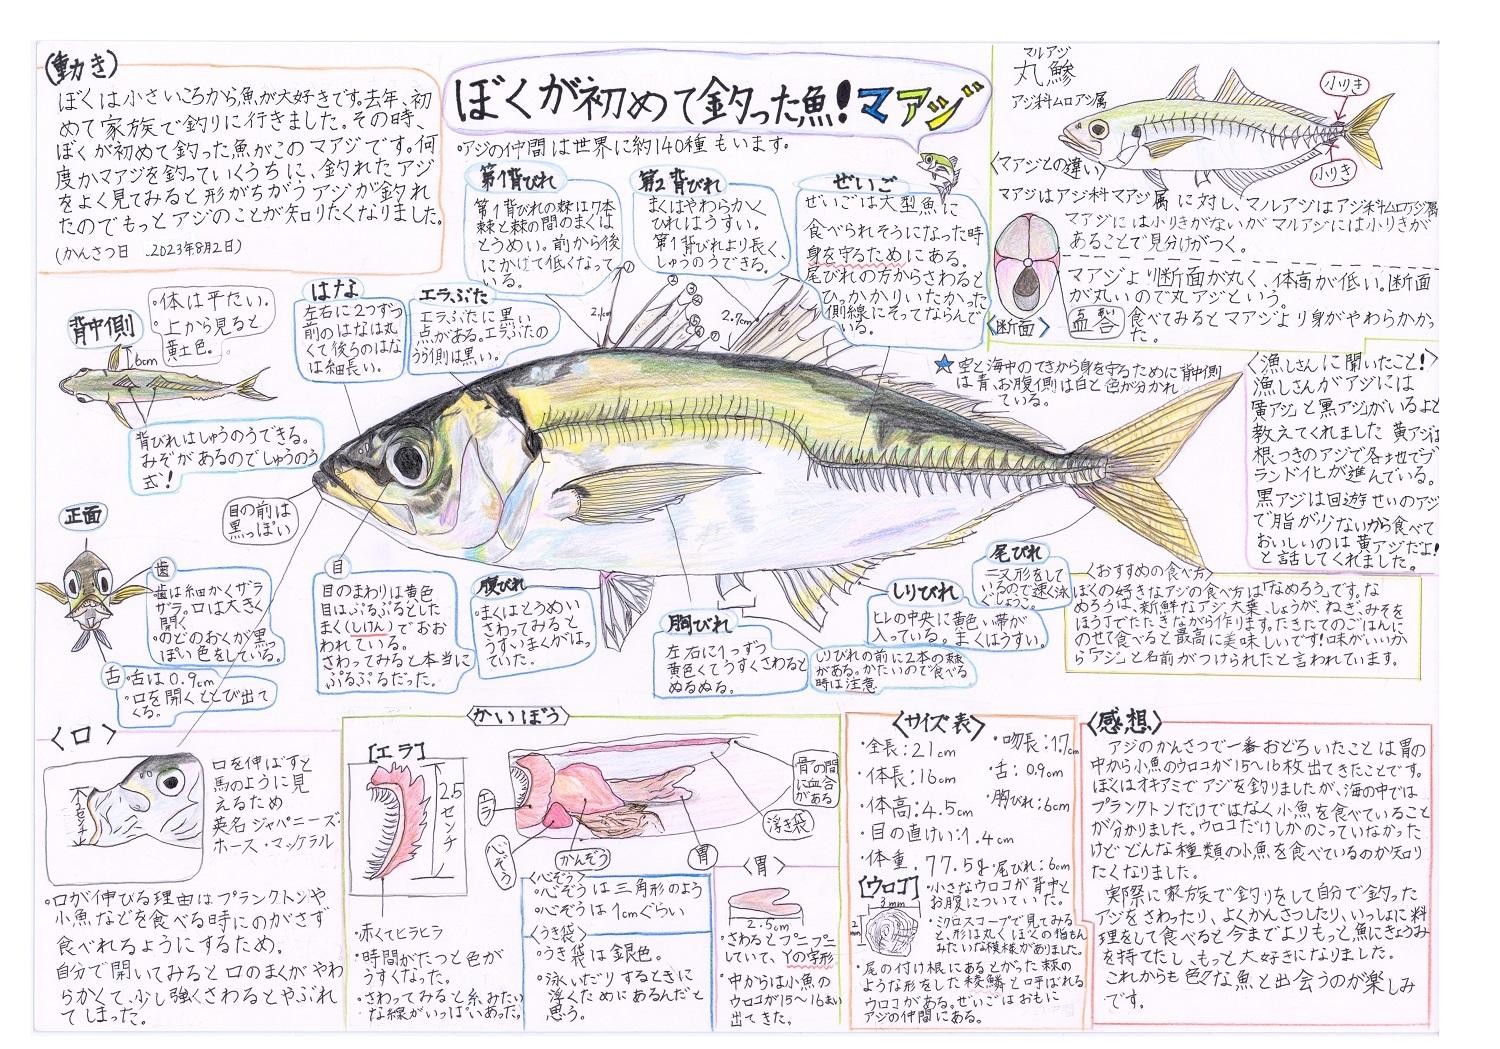 (動き)
ぼくは小さいころから魚が大好きです。去年、初
めて家族で釣りに行きました。その時、
ぼくが初めて釣った魚がこのマアジです。何
度かマアジを釣っていくうちに、釣れたアジ
をよく見てみると形がちがうアジが釣れ
たのでもっとアジのことが知りたくなりました。
(かんさつ日 2023年8月2日)
ぼくが初めて釣った魚!マアジ
・アジの仲間は世界に約140種もいます。
第1背びれ
第1背びれの棘は7本
棘と棘の間のまくは
とうめい。前から後
にかけて低くなって
いる。
第2背びれ
まくはやわらかく
ひれはうすい。
第1背びれより長く、
しゅうのうできる。
ぜいご
ぜいごは大型魚に
食べられそうになった時
身を守るためにある。
尾びれの方からさわると
ひっかかりいたかった
側線にそってならんで
いる。
マルアジ
丸鯵
アジ科ムロアジ属
小りき
小りき
〈マアジとの違い〉
マアジはアジ科マアジ属に対し、マルアジはアジ科ムロアジ属
マアジには小りきがないがマルアジには小りきが
あることで見分けがつく。
マアジより断面が丸く、体高が低い。断面
が丸いので丸アジという。
〈断面〉
血合
食べてみるとマアジより身がやわらかかっ
た。
背中側
・体は平たい。
・上から見ると
黄土色。
6cm
背びれはしゅうのうできる。
みぞがあるのでしゅうのう
式!
はな
左右に2つずつ
前のはなは丸
くて後ろのはな
は細長い。
エラぶた
エラぶたに黒い
点がある。エラぶたの
うら側は黒い。
①
②
③
④
⑤
⑥
⑦
2.1cm
2.7cm
★空と海中のてきから身を守るために背中側
は青、お腹側は白と色が分かれ
ている。
〈漁しさんに聞いたこと!〉
漁しさんがアジには
黄アジと黒アジがいるよと
教えてくれました 黄アジは
根つきのアジで各地でブ
ランド化が進んでいる。
黒アジは回遊せいのアジ
で脂が少ないから食べて
おいしいのは黄アジだよ!
と話してくれました。
目の前は
黒っぽい
正面
歯
・歯は細かくザラ
ザラ。口は大きく
開く
・のどのおくが黒っ
ぽい色をしている。
舌
・舌は0.9cm
・口を開くととび出て
くる。
目
目のまわりは黄色
目はぷるぷるとした
まく(しけん)でおお
われている。
さわってみると本当に
ぷるぷるだった。
腹びれ
・まくはとうめい
さわってみると
うすいまくがはっ
ていた。
胸びれ
左右に1つずつ
黄色くてうすくさわると
ぬるぬる。
しりびれ
ヒレの中央に黄色い帯が
入っている。まくはうすい。
しりびれの前に2本の棘
がある。かたいので食べる
時は注意
尾びれ
二又形をして
いるので速く泳
ぐでしょう。
〈おすすめの食べ方〉
ぼくの好きなアジの食べ方は「なめろう」です。な
めろうは、新鮮なアジ、大葉、しょうが、ねぎ、みそを
ほう丁でたたきながら作ります。たきたてのごはんに
のせて食べると最高に美味しいです!味がいいか
ら「アジ」と名前がつけられたと言われています。
〈口〉
2センチ
口を伸ばすと
馬のように見
えるため
英名ジャパニーズ・
ホース・マッケラル
・口が伸びる理由はプランクトンや
小魚などを食べる時にのがさず
食べれるようにするため。
自分で開いてみると口のまくがやわ
らかくて、少し強くさわるとやぶれ
てしまった。
かいぼう
[エラ]
2.5センチ
・赤くてヒラヒラ
・時間がたつと色が
うすくなった。
・さわってみると糸みたい
な線がいっぱいあった。
エラ
心ぞう
かんぞう
胃
浮き袋
骨の間
に血合
がある
〈心ぞう〉
・心ぞうは三角形のよう
・心ぞうは1cmぐらい
〈うき袋〉
・うき袋は銀色。
・泳いだりするときに
浮くためにあるんだと
思う。
〈胃〉
2.5cm
・さわるとプニプニ
していて、Yの字形
・中からは小魚の
ウロコが15〜16まい
出てきた。
〈サイズ表〉
・全長:21cm
・体長:16cm
・体高:4.5cm
・目の直けい:1.4cm
・体重:77.5g
・吻長:1.7cm
・舌:0.9cm
・胸びれ:6cm
・尾びれ:6cm
[ウロコ]
3mm
2mm
・小さなウロコが背中と
お腹についていた。
・ミクロスコープで見てみる
と、形は丸くぼくの指もん
みたいな模様がありました。
・尾の付け根にあるとがった棘の
ような形をした稜鱗と呼ばれる
ウロコがある。ぜいごはおもに
アジの仲間にある。
〈感想〉
アジのかんさつで一番おどろいたことは胃の
中から小魚のウロコが15〜16枚出てきたことです。
ぼくはオキアミでアジを釣りましたが、海の中では
プランクトンだけではなく小魚を食べていること
が分かりました。ウロコだけしかのこっていなかった
けどどんな種類の小魚を食べているのか知り
たくなりました。
実際に家族で釣りをして自分で釣った
アジをさわったり、よくかんさつしたり、いっしょに料
理をして食べると今までよりもっと魚にきょうみ
を持てたし、もっと大好きになりました。
これからも色々な魚と出会うのが楽しみ
です。